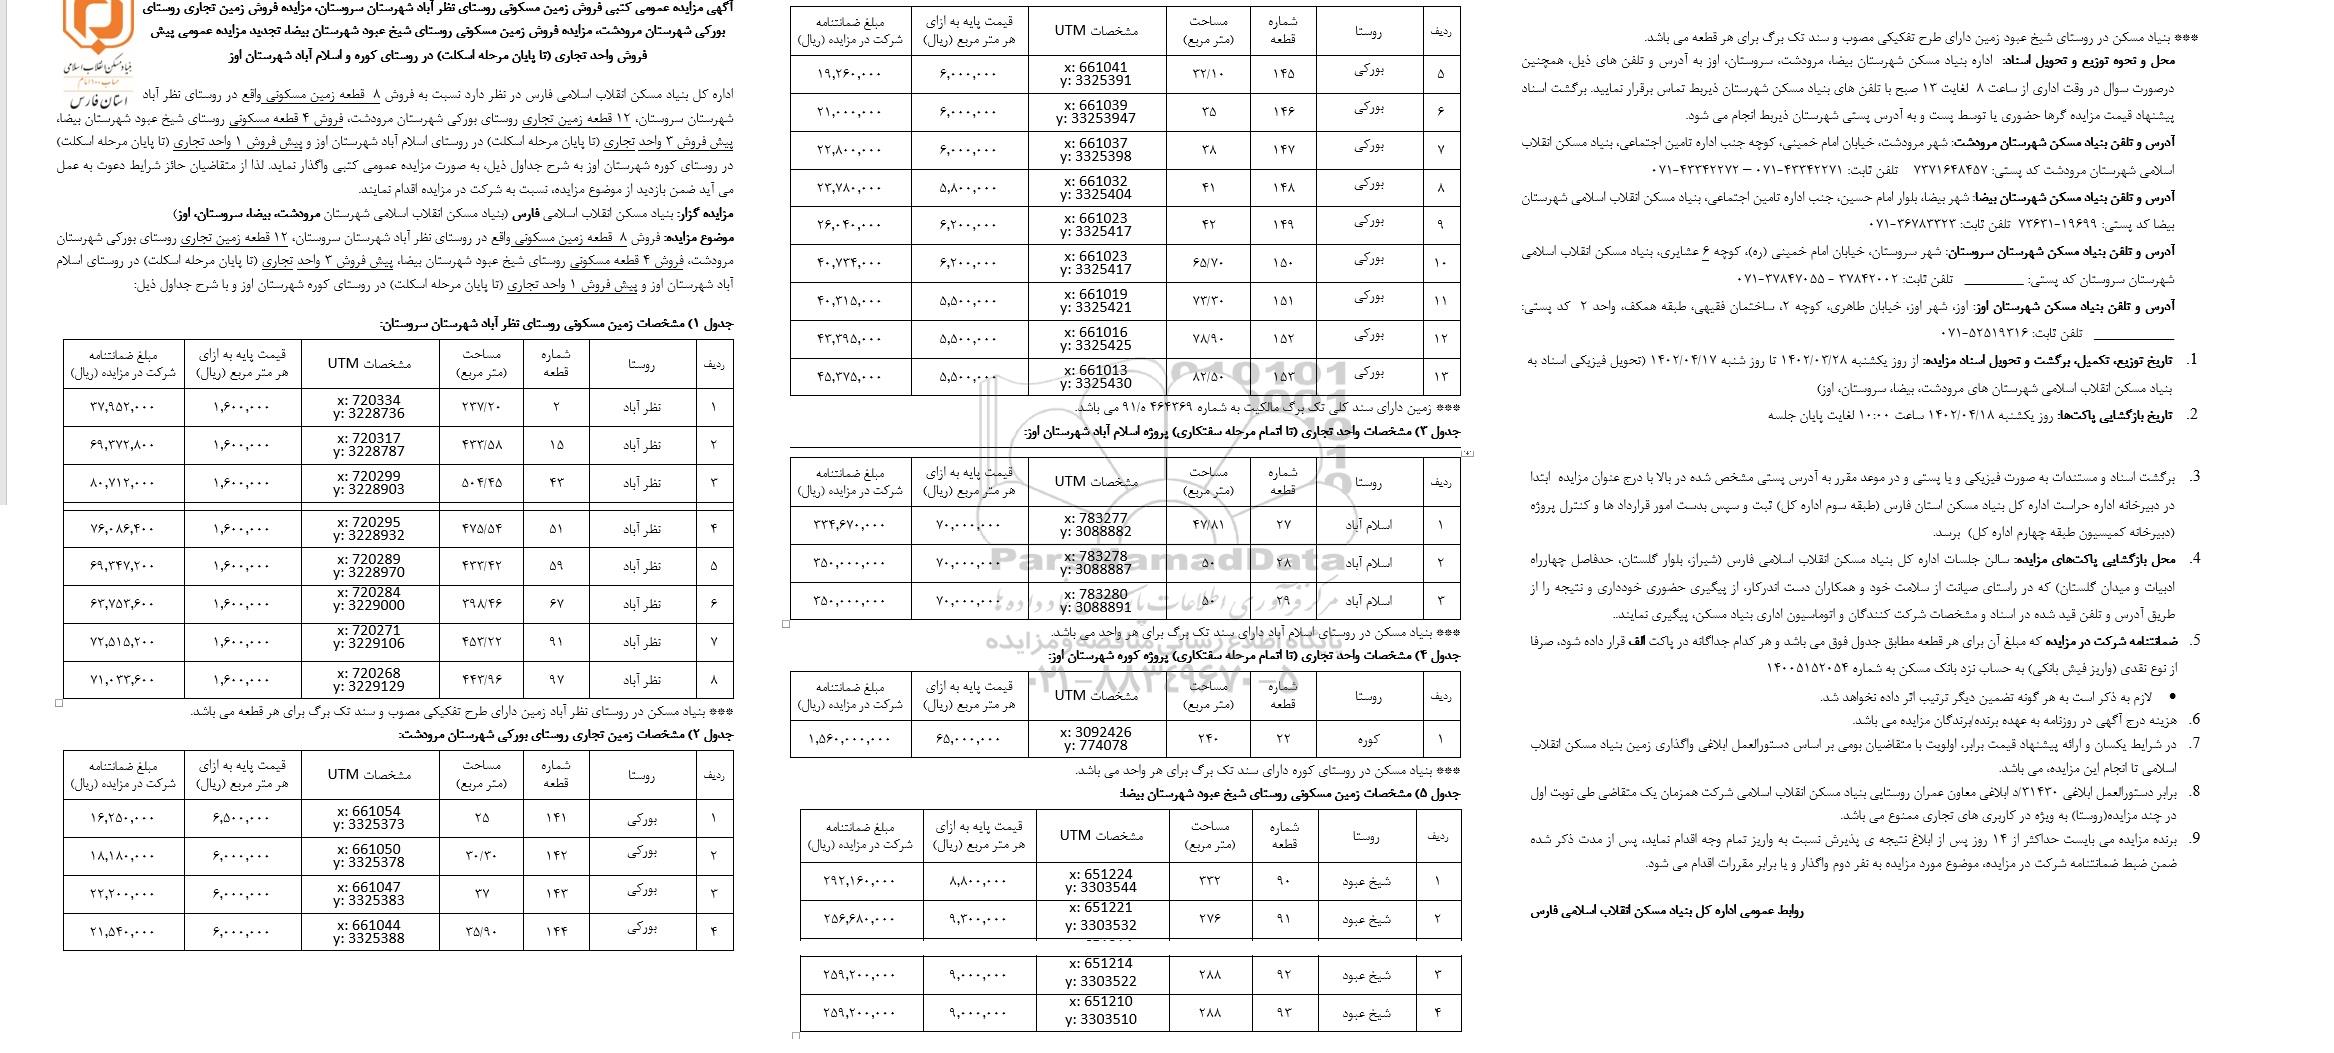 آگهی مزایده عمومی کتبی فروش زمین مسکونی روستای نظر آباد شهرستان سروستان، مزایده فروش زمین تجاری روستای
بورکی شهرستان مرودشت، مزایده فروش زمین مسکونی روستای شیخ عبود شهرستان بیضا، تجدید مزایده عمومی پیش
فروش واحد تجاری (تا پایان مرحله اسکلت) در روستای کوره و اسلام آباد شهرستان اوز
بنیاد مسکن انقلاب اسلامی
استان فارس
اداره کل بنیاد مسکن انقلاب اسلامی فارس در نظر دارد نسبت به فروش ۸ قطعه زمین مسکونی واقع در روستای نظر آباد
شهرستان سروستان، ۱۲ قطعه زمین تجاری روستای بورکی شهرستان مرودشت، فروش ۴ قطعه مسکونی روستای شیخ عبود شهرستان بیضا،
پیش فروش ۳ واحد تجاری (تا پایان مرحله اسکلت) در روستای اسلام آباد شهرستان اوز و پیش فروش ۱ واحد تجاری (تا پایان مرحله اسکلت)
در روستای کوره شهرستان اوز به شرح جداول ذیل، به صورت مزایده عمومی کتبی واگذار نماید. لذا از متقاضیان حائز شرایط دعوت به عمل
می آید ضمن بازدید از موضوع مزایده، نسبت به شرکت در مزایده اقدام نمایند.
مزایده گزار: بنیاد مسکن انقلاب اسلامی فارس (بنیاد مسکن انقلاب اسلامی شهرستان مرودشت، بیضا، سروستان، اوز)
موضوع مزایده: فروش ۸ قطعه زمین مسکونی واقع در روستای نظر آباد شهرستان سروستان، ۱۲ قطعه زمین تجاری روستای بورکی شهرستان
مرودشت، فروش ۴ قطعه مسکونی روستای شیخ عبود شهرستان بیضا، پیش فروش ۳ واحد تجاری (تا پایان مرحله اسکلت) در روستای اسلام
آباد شهرستان اوز و پیش فروش ۱ واحد تجاری (تا پایان مرحله اسکلت) در روستای کوره شهرستان اوز و با شرح جداول ذیل:
جدول ۱) مشخصات زمین مسکونی روستای نظر آباد شهرستان سروستان:
ردیف روستا شماره قطعه مساحت (متر مربع) مشخصات UTM قیمت پایه به ازای هر متر مربع (ریال) مبلغ ضمانتنامه شرکت در مزایده (ریال)
۱ نظر آباد ۲ ۲۳۷/۲۰ x: 720334 y: 3228736 ۱,۶۰۰,۰۰۰ ۳۷,۹۵۲,۰۰۰
۲ نظر آباد ۱۵ ۴۳۳/۵۸ x: 720317 y: 3228787 ۱,۶۰۰,۰۰۰ ۶۹,۳۷۲,۸۰۰
۳ نظر آباد ۴۳ ۵۰۴/۴۵ x: 720299 y: 3228903 ۱,۶۰۰,۰۰۰ ۸۰,۷۱۲,۰۰۰
۴ نظر آباد ۵۱ ۴۷۵/۵۴ x: 720295 y: 3228932 ۱,۶۰۰,۰۰۰ ۷۶,۰۸۶,۴۰۰
۵ نظر آباد ۵۹ ۴۳۳/۴۲ x: 720289 y: 3228970 ۱,۶۰۰,۰۰۰ ۶۹,۳۴۷,۲۰۰
۶ نظر آباد ۶۷ ۳۹۸/۴۶ x: 720284 y: 3229000 ۱,۶۰۰,۰۰۰ ۶۳,۷۵۳,۶۰۰
۷ نظر آباد ۹۱ ۴۵۳/۲۲ x: 720271 y: 3229106 ۱,۶۰۰,۰۰۰ ۷۲,۵۱۵,۲۰۰
۸ نظر آباد ۹۷ ۴۴۳/۹۶ x: 720268 y: 3229129 ۱,۶۰۰,۰۰۰ ۷۱,۰۳۳,۶۰۰
*** بنیاد مسکن در روستای نظر آباد زمین دارای طرح تفکیکی مصوب و سند تک برگ برای هر قطعه می باشد.
جدول ۲) مشخصات زمین تجاری روستای بورکی شهرستان مرودشت:
ردیف روستا شماره قطعه مساحت (متر مربع) مشخصات UTM قیمت پایه به ازای هر متر مربع (ریال) مبلغ ضمانتنامه شرکت در مزایده (ریال)
۱ بورکی ۱۴۱ ۲۵ x: 661054 y: 3325373 ۶,۵۰۰,۰۰۰ ۱۶,۲۵۰,۰۰۰
۲ بورکی ۱۴۲ ۳۰/۳۰ x: 661050 y: 3325378 ۶,۰۰۰,۰۰۰ ۱۸,۱۸۰,۰۰۰
۳ بورکی ۱۴۳ ۳۷ x: 661047 y: 3325383 ۶,۰۰۰,۰۰۰ ۲۲,۲۰۰,۰۰۰
۴ بورکی ۱۴۴ ۳۵/۹۰ x: 661044 y: 3325388 ۶,۰۰۰,۰۰۰ ۲۱,۵۴۰,۰۰۰
ردیف روستا شماره قطعه مساحت (متر مربع) مشخصات UTM قیمت پایه به ازای هر متر مربع (ریال) مبلغ ضمانتنامه شرکت در مزایده (ریال)
۵ بورکی ۱۴۵ ۳۲/۱۰ x: 661041 y: 3325391 ۶,۰۰۰,۰۰۰ ۱۹,۲۶۰,۰۰۰
۶ بورکی ۱۴۶ ۳۵ x: 661039 y: 33253947 ۶,۰۰۰,۰۰۰ ۲۱,۰۰۰,۰۰۰
۷ بورکی ۱۴۷ ۳۸ x: 661037 y: 3325398 ۶,۰۰۰,۰۰۰ ۲۲,۸۰۰,۰۰۰
۸ بورکی ۱۴۸ ۴۱ x: 661032 y: 3325404 ۵,۸۰۰,۰۰۰ ۲۳,۷۸۰,۰۰۰
۹ بورکی ۱۴۹ ۴۲ x: 661023 y: 3325417 ۶,۲۰۰,۰۰۰ ۲۶,۰۴۰,۰۰۰
۱۰ بورکی ۱۵۰ ۶۵/۷۰ x: 661023 y: 3325417 ۶,۲۰۰,۰۰۰ ۴۰,۷۳۴,۰۰۰
۱۱ بورکی ۱۵۱ ۷۳/۳۰ x: 661019 y: 3325421 ۵,۵۰۰,۰۰۰ ۴۰,۳۱۵,۰۰۰
۱۲ بورکی ۱۵۲ ۷۸/۹۰ x: 661016 y: 3325425 ۵,۵۰۰,۰۰۰ ۴۳,۳۹۵,۰۰۰
۱۳ بورکی ۱۵۳ ۸۲/۵۰ x: 661013 y: 3325430 ۵,۵۰۰,۰۰۰ ۴۵,۳۷۵,۰۰۰
*** زمین دارای سند کلی تک برگ مالکیت به شماره ۴۶۴۳۶۹ ه/۹۱ می باشد.
جدول ۳) مشخصات واحد تجاری (تا اتمام مرحله سفتکاری) پروژه اسلام آباد شهرستان اوز:
ردیف روستا شماره قطعه مساحت (متر مربع) مشخصات UTM قیمت پایه به ازای هر متر مربع (ریال) مبلغ ضمانتنامه شرکت در مزایده (ریال)
۱ اسلام آباد ۲۷ ۴۷/۸۱ x: 783277 y: 3088882 ۷۰,۰۰۰,۰۰۰ ۳۳۴,۶۷۰,۰۰۰
۲ اسلام آباد ۲۸ ۵۰ x: 783278 y: 3088887 ۷۰,۰۰۰,۰۰۰ ۳۵۰,۰۰۰,۰۰۰
۳ اسلام آباد ۲۹ ۵۰ x: 783280 y: 3088891 ۷۰,۰۰۰,۰۰۰ ۳۵۰,۰۰۰,۰۰۰
ParsNamadData
پایگاه اطلاع رسانی مناقصه و مزایده
۰۲۱-۸۸۳۴۹۶۷۰-۵
*** بنیاد مسکن در روستای اسلام آباد دارای سند تک برگ برای هر واحد می باشد.
جدول ۴) مشخصات واحد تجاری (تا اتمام مرحله سفتکاری) پروژه کوره شهرستان اوز:
ردیف روستا شماره قطعه مساحت (متر مربع) مشخصات UTM قیمت پایه به ازای هر متر مربع (ریال) مبلغ ضمانتنامه شرکت در مزایده (ریال)
۱ کوره ۲۲ ۲۴۰ x: 3092426 y: 774078 ۶۵,۰۰۰,۰۰۰ ۱,۵۶۰,۰۰۰,۰۰۰
*** بنیاد مسکن در روستای کوره دارای سند تک برگ برای هر واحد می باشد.
جدول ۵) مشخصات زمین مسکونی روستای شیخ عبود شهرستان بیضا:
ردیف روستا شماره قطعه مساحت (متر مربع) مشخصات UTM قیمت پایه به ازای هر متر مربع (ریال) مبلغ ضمانتنامه شرکت در مزایده (ریال)
۱ شیخ عبود ۹۰ ۳۳۲ x: 651224 y: 3303544 ۸,۸۰۰,۰۰۰ ۲۹۲,۱۶۰,۰۰۰
۲ شیخ عبود ۹۱ ۲۷۶ x: 651221 y: 3303532 ۹,۳۰۰,۰۰۰ ۲۵۶,۶۸۰,۰۰۰
۳ شیخ عبود ۹۲ ۲۸۸ x: 651214 y: 3303522 ۹,۰۰۰,۰۰۰ ۲۵۹,۲۰۰,۰۰۰
۴ شیخ عبود ۹۳ ۲۸۸ x: 651210 y: 3303510 ۹,۰۰۰,۰۰۰ ۲۵۹,۲۰۰,۰۰۰
*** بنیاد مسکن در روستای شیخ عبود زمین دارای طرح تفکیکی مصوب و سند تک برگ برای هر قطعه می باشد.
محل و نحوه توزیع و تحویل اسناد: اداره بنیاد مسکن شهرستان بیضا، مرودشت، سروستان، اوز به آدرس و تلفن های ذیل، همچنین
درصورت سوال در وقت اداری از ساعت ۸ لغایت ۱۳ صبح با تلفن های بنیاد مسکن شهرستان ذیربط تماس برقرار نمایید. برگشت اسناد
پیشنهاد قیمت مزایده گرها حضوری یا توسط پست و به آدرس پستی شهرستان ذیربط انجام می شود.
آدرس و تلفن بنیاد مسکن شهرستان مرودشت: شهر مرودشت، خیابان امام خمینی، کوچه جنب اداره تامین اجتماعی، بنیاد مسکن انقلاب
اسلامی شهرستان مرودشت کد پستی: ۷۳۷۱۶۴۸۴۵۷ تلفن ثابت: ۴۳۳۴۲۲۷۱-۰۷۱ – ۴۳۳۴۲۲۷۲-۰۷۱
آدرس و تلفن بنیاد مسکن شهرستان بیضا: شهر بیضا، بلوار امام حسین، جنب اداره تامین اجتماعی، بنیاد مسکن انقلاب اسلامی شهرستان
بیضا کد پستی: ۱۹۶۹۹-۷۳۶۳۱ تلفن ثابت: ۳۶۷۸۳۳۲۳-۰۷۱
آدرس و تلفن بنیاد مسکن شهرستان سروستان: شهر سروستان، خیابان امام خمینی (ره)، کوچه ۶ عشایری، بنیاد مسکن انقلاب اسلامی
شهرستان سروستان کد پستی: ________ تلفن ثابت: ۳۷۸۴۲۰۰۲ - ۳۷۸۴۷۰۵۵-۰۷۱
آدرس و تلفن بنیاد مسکن شهرستان اوز: اوز، شهر اوز، خیابان طاهری، کوچه ۲، ساختمان فقیهی، طبقه همکف، واحد ۲ کد پستی:
________ تلفن ثابت: ۵۲۵۱۹۳۱۶-۰۷۱
1. تاریخ توزیع، تکمیل، برگشت و تحویل اسناد مزایده: از روز یکشنبه ۱۴۰۲/۰۳/۲۸ تا روز شنبه ۱۴۰۲/۰۴/۱۷ (تحویل فیزیکی اسناد به
بنیاد مسکن انقلاب اسلامی شهرستان های مرودشت، بیضا، سروستان، اوز)
2. تاریخ بازگشایی پاکت‌ها: روز یکشنبه ۱۴۰۲/۰۴/۱۸ ساعت ۱۰:۰۰ لغایت پایان جلسه
3. برگشت اسناد و مستندات به صورت فیزیکی و یا پستی و در موعد مقرر به آدرس پستی مشخص شده در بالا با درج عنوان مزایده ابتدا
در دبیرخانه اداره حراست اداره کل بنیاد مسکن استان فارس (طبقه سوم اداره کل) ثبت و سپس بدست امور قرارداد ها و کنترل پروژه
(دبیرخانه کمیسیون طبقه چهارم اداره کل) برسد.
4. محل بازگشایی پاکت‌های مزایده: سالن جلسات اداره کل بنیاد مسکن انقلاب اسلامی فارس (شیراز، بلوار گلستان، حدفاصل چهارراه
ادبیات و میدان گلستان) که در راستای صیانت از سلامت خود و همکاران دست اندرکار، از پیگیری حضوری خودداری و نتیجه را از
طریق آدرس و تلفن قید شده در اسناد و مشخصات شرکت کنندگان و اتوماسیون اداری بنیاد مسکن، پیگیری نمایند..
5. ضمانتنامه شرکت در مزایده که مبلغ آن برای هر قطعه مطابق جدول فوق می باشد و هر کدام جداگانه در پاکت الف قرار داده شود، صرفا
از نوع نقدی (واریز فیش بانکی) به حساب نزد بانک مسکن به شماره ۱۴۰۰۵۱۵۲۰۵۴
• لازم به ذکر است به هر گونه تضمین دیگر ترتیب اثر داده نخواهد شد.
6. هزینه درج آگهی در روزنامه به عهده برنده/برندگان مزایده می باشد.
7. در شرایط یکسان و ارائه پیشنهاد قیمت برابر، اولویت با متقاضیان بومی بر اساس دستورالعمل ابلاغی واگذاری زمین بنیاد مسکن انقلاب
اسلامی تا انجام این مزایده، می باشد.
8. برابر دستورالعمل ابلاغی ۳۱۴۳۰/د ابلاغی معاون عمران روستایی بنیاد مسکن انقلاب اسلامی شرکت همزمان یک متقاضی طی نوبت اول
در چند مزایده(روستا) به ویژه در کاربری های تجاری ممنوع می باشد.
9. برنده مزایده می بایست حداکثر از ۱۴ روز پس از ابلاغ نتیجه ی پذیرش نسبت به واریز تمام وجه اقدام نماید، پس از مدت ذکر شده
ضمن ضبط ضمانتنامه شرکت در مزایده، موضوع مورد مزایده به نفر دوم واگذار و یا برابر مقررات اقدام می شود.
روابط عمومی اداره کل بنیاد مسکن انقلاب اسلامی فارس